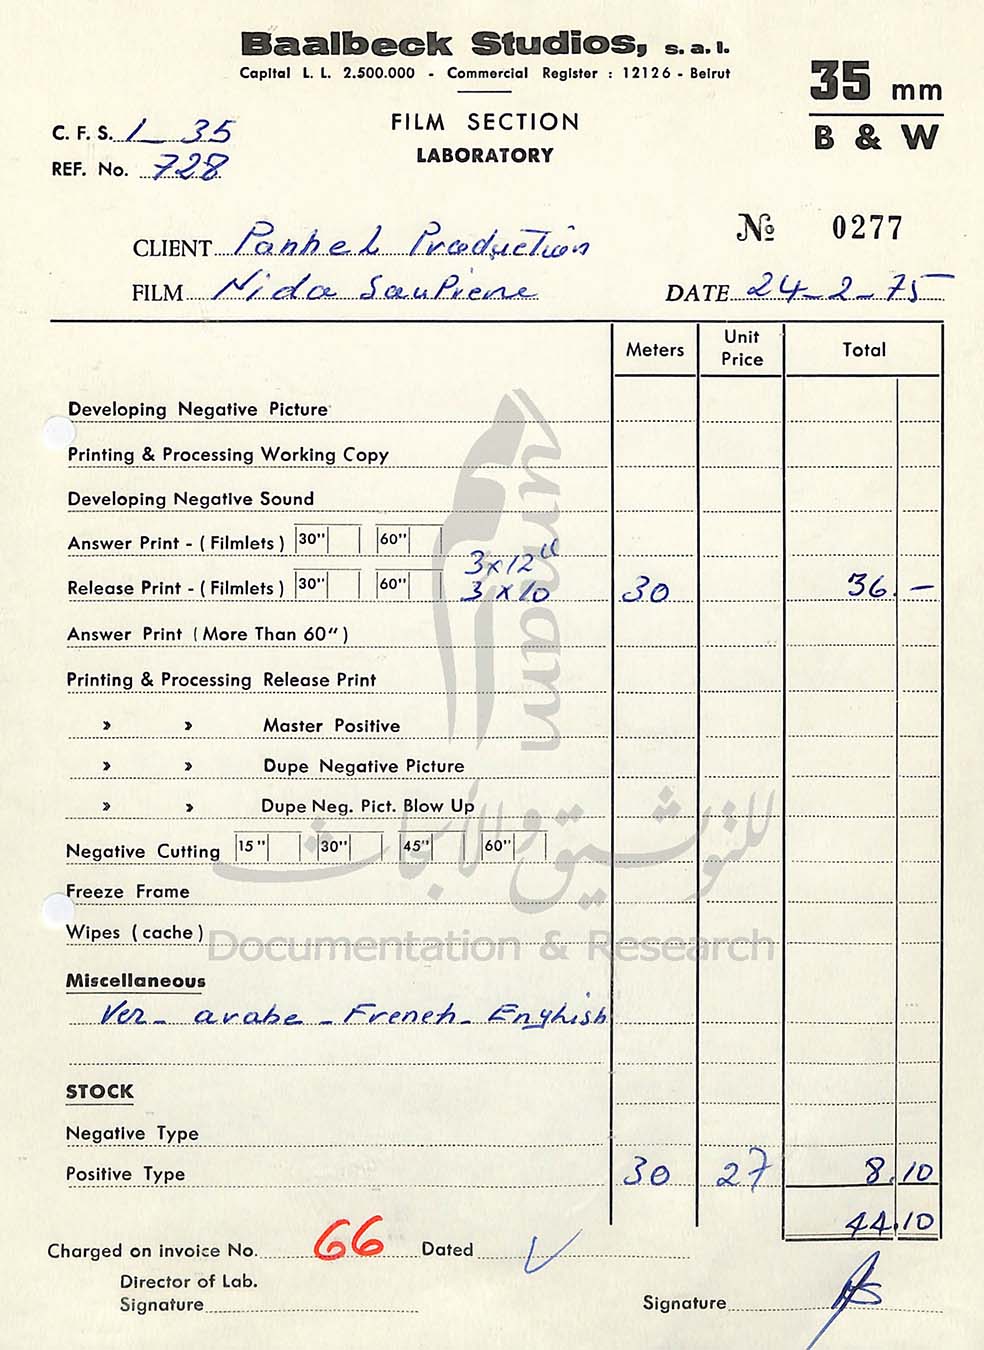 Baalbeck Studios, s.a.l.
Capital L. L. 2.500.000 - Commercial Register : 12126 - Beirut
35 mm
B & W
FILM SECTION
LABORATORY
C. F. S. 1_35
REF. No. 728
№ 0277
CLIENT Panhel Production
FILM Nida
DATE 24-2-75
Meters Unit Price Total
Developing Negative Picture
Printing & Processing Working Copy
Developing Negative Sound
Answer Print - ( Filmlets ) 30" 60"
3x12"
Release Print - ( Filmlets ) 30" 60" 3x10 30 36. -
Answer Print (More Than 60")
Printing & Processing Release Print
» » Master Positive
» » Dupe Negative Picture
» » Dupe Neg. Pict. Blow Up
Negative Cutting 15" 30" 45" 60"
Freeze Frame
Wipes ( cache )
Miscellaneous
Ver_ arabe - French - Enghish
STOCK
Negative Type
Positive Type 30 27 8.10
44.10
Charged on invoice No. 66 Dated
Director of Lab.
Signature
Signature
umam
للتوثيق والأبحاث
Documentation & Research